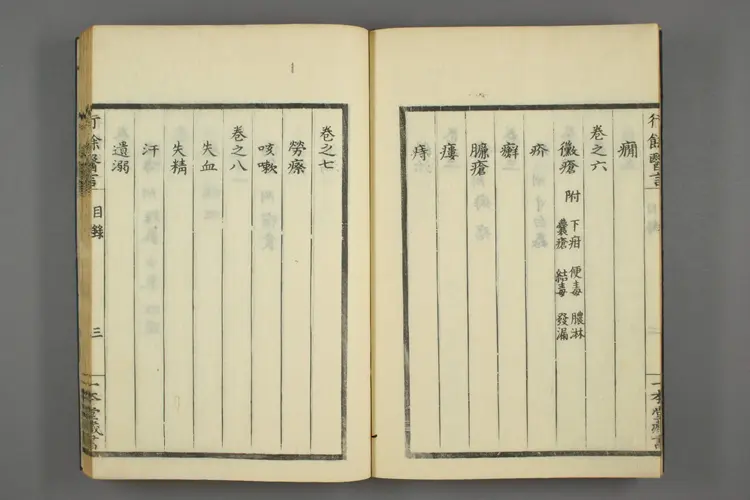 行餘醫言 目錄 二 一本堂藏書
癇
卷之六
黴瘡 附 下疳 便毒 膿淋
囊癰 結毒 發漏
疥
癬
臁瘡
瘻
痔
卷之七
勞瘵
咳嗽
卷之八
失血
失精
汗
遺溺
行餘醫言 目錄 三 一本堂藏書